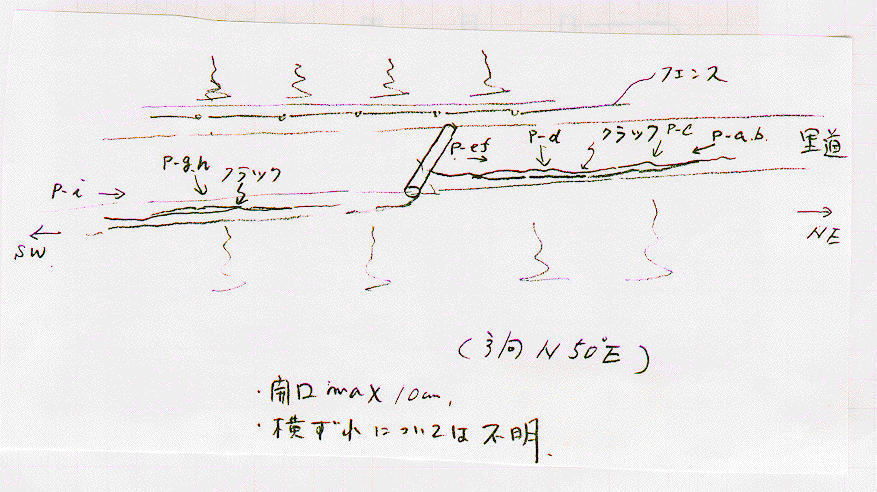 フェンス
P-ef
P-d
クラック
P-c
P-a.b.
里道
P-g.h
クラック
P-i
SW
NE
(方向 N50°E)
・開口 max 10cm.
・横ずれについては不明.